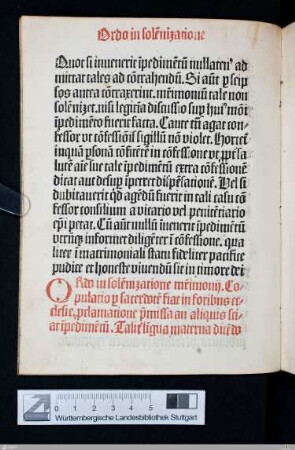 Ordo in solẽnizatione
Quot si inuenerit ĩpedimẽtũ nullatenꝰ ad
mittat tales ad cõtrahendũ. Si aũt ꝑ seip
sos antea cõtraxerint. mr̃imoniũ tale non
solẽnizet. nisi legitia discussio suꝑ hmõi
ĩpedimẽto fuerit facta. Caute tñ agat con
fessor vt cõfessiõis sigillũ nõ violet. Hortet̉
inquã ꝑsonã cõfitẽtẽ in cõfessione vt
lutẽ aĩe sue tale ĩpedimẽtũ extra cõfessionẽ
dicat aut desuꝑ ĩpetret dispẽsationẽ. Vel si
dubitauerit qd̃ agẽdũ fuerit in tali casu cõ
fessor consilium a vicario vel penitẽtiario
ep̃i petat. Cũ aũt nullũ inuenerit ĩpedimẽtũ
vtrũqꝫ informet diligẽter ĩ cõfessione. qua
liter ĩ matrimoniali statu fideliter pacifice
pudice et honeste viuendũ sit in timore dei
ORdo in solẽnizatione mr̃imonij. Co
pulatio ꝑ sacerdotẽ fiat in foribus ec
clesie. ꝓclamatione p̃missa an aliquis sci
at ĩpedimẽtũ. Tali ligua materna dicẽdo
0 1 2 3 4 5
Württembergische Landesbibliothek Stuttgart